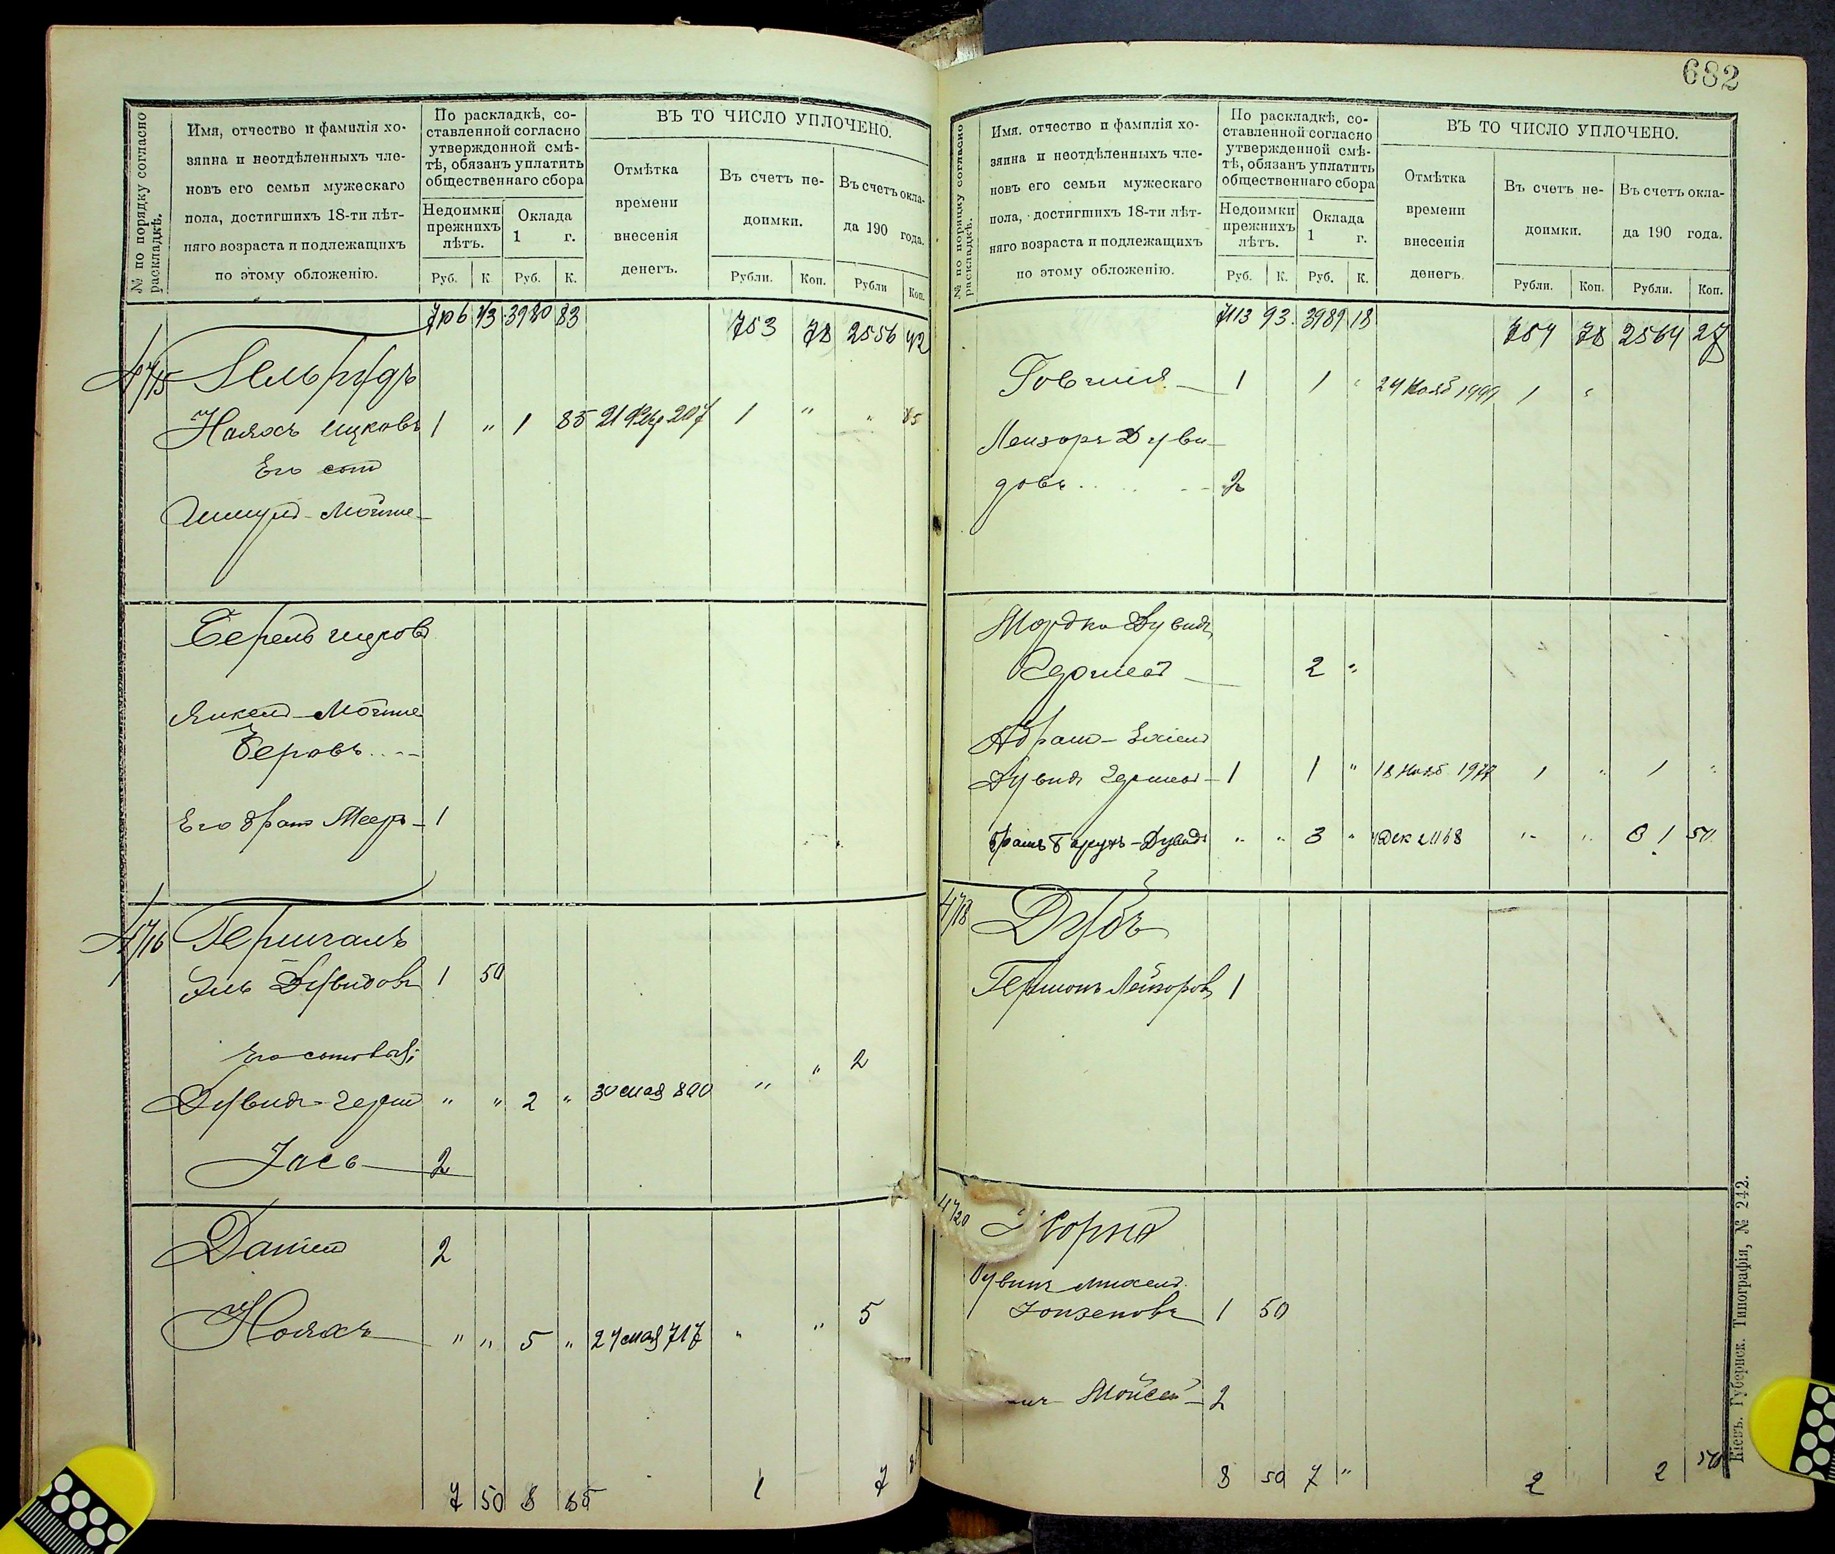 682
№ по порядку согласно раскладкѣ.
Имя, отчество и фамилія хо-
зяина и неотдѣленныхъ чле-
новъ его семьи мужескаго
пола, достигшихъ 18-ти лѣт-
няго возраста и подлежащихъ
по этому обложенію.
По раскладкѣ, со-
ставленной согласно
утвержденной смѣ-
тѣ, обязанъ уплатить
общественнаго сбора
Недоимки
прежнихъ
лѣтъ.
Оклада
1 г.
Руб. К. Руб. К.
ВЪ ТО ЧИСЛО УПЛОЧЕНО.
Отмѣтка
времени
внесенія
денегъ.
Въ счетъ не-
доимки.
Въ счетъ окла-
да 190 года.
Рубли. Коп. Рубли Коп.
7106 43 3980 83 753 78 2556 42
4715 Гельфудъ
Нояхъ Ицковъ 1 " 1 85 1 " " 85
Его сынъ
Шмуль-Мойше
Берель Ицковъ
Янкель-Мойше
Беровъ
Его братъ Меер 1
4716 Гершгалъ
Эль Дувидовъ 1 50
Его сыновья:
Дувидъ-Герш " " 2 " 30 мая 890 " " 2
Іось 2
Даніел 2
Нояхъ " " 5 " 27 мая 717 " " 5
7 50 8 85 1 7
№ по порядку согласно раскладкѣ.
Имя, отчество и фамилія хо-
зяина и неотдѣленныхъ чле-
новъ его семьи мужескаго
пола, достигшихъ 18-ти лѣт-
няго возраста и подлежащихъ
по этому обложенію.
По раскладкѣ, со-
ставленной согласно
утвержденной смѣ-
тѣ, обязанъ уплатить
общественнаго сбора
Недоимки
прежнихъ
лѣтъ.
Оклада
1 г.
Руб. К. Руб. К.
ВЪ ТО ЧИСЛО УПЛОЧЕНО.
Отмѣтка
времени
внесенія
денегъ.
Въ счетъ не-
доимки.
Въ счетъ окла-
да 190 года.
Рубли. Коп. Рубли. Коп.
7113 93 3989 18 754 78 2564 27
Говшія 1 1 " 24 Нояб 1 "
Лейзоръ Дуви-
довъ 2
Мордко Дувидъ
Гершев 2 "
Абрам-
Дувидъ Гершев 1 1 " 18 Нояб 1977 1 " 1 "
братъ Барухъ-Дувид " " 3 " 4 Дек 2168 " " 1 50
4718 Дубъ
Гершонъ Лейзоровъ 1
4720
Рувинъ Михель
1 50
Мойсей 2
8 50 7 " 2 2 50
Кіевъ. Губернск. Типографія, № 242.